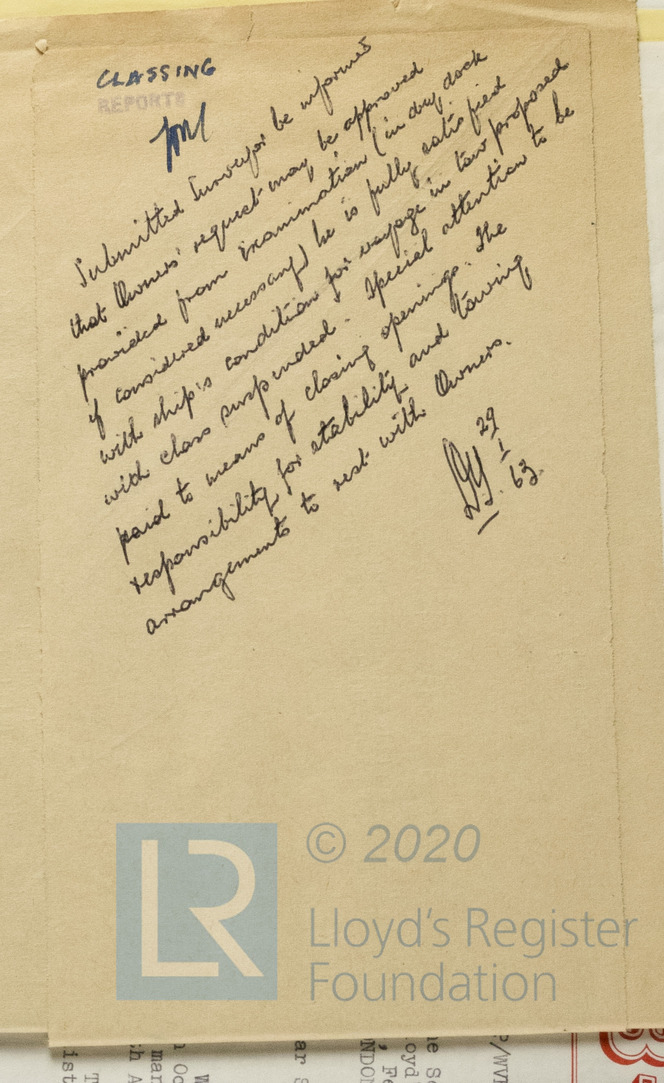 CLASSING
REPORTS
Submitted Surveyor be informed
that Owners' request may be approved
provided from examination (in dry dock
if considered necessary) he is fully satisfied
with ship's condition for voyage in tow proposed
with class suspended. Special attention to be
paid to means of closing openings. The
responsibility for stability and towing
arrangements to rest with Owners.
29
1
63.
LR
© 2020
Lloyd's Register
Foundation